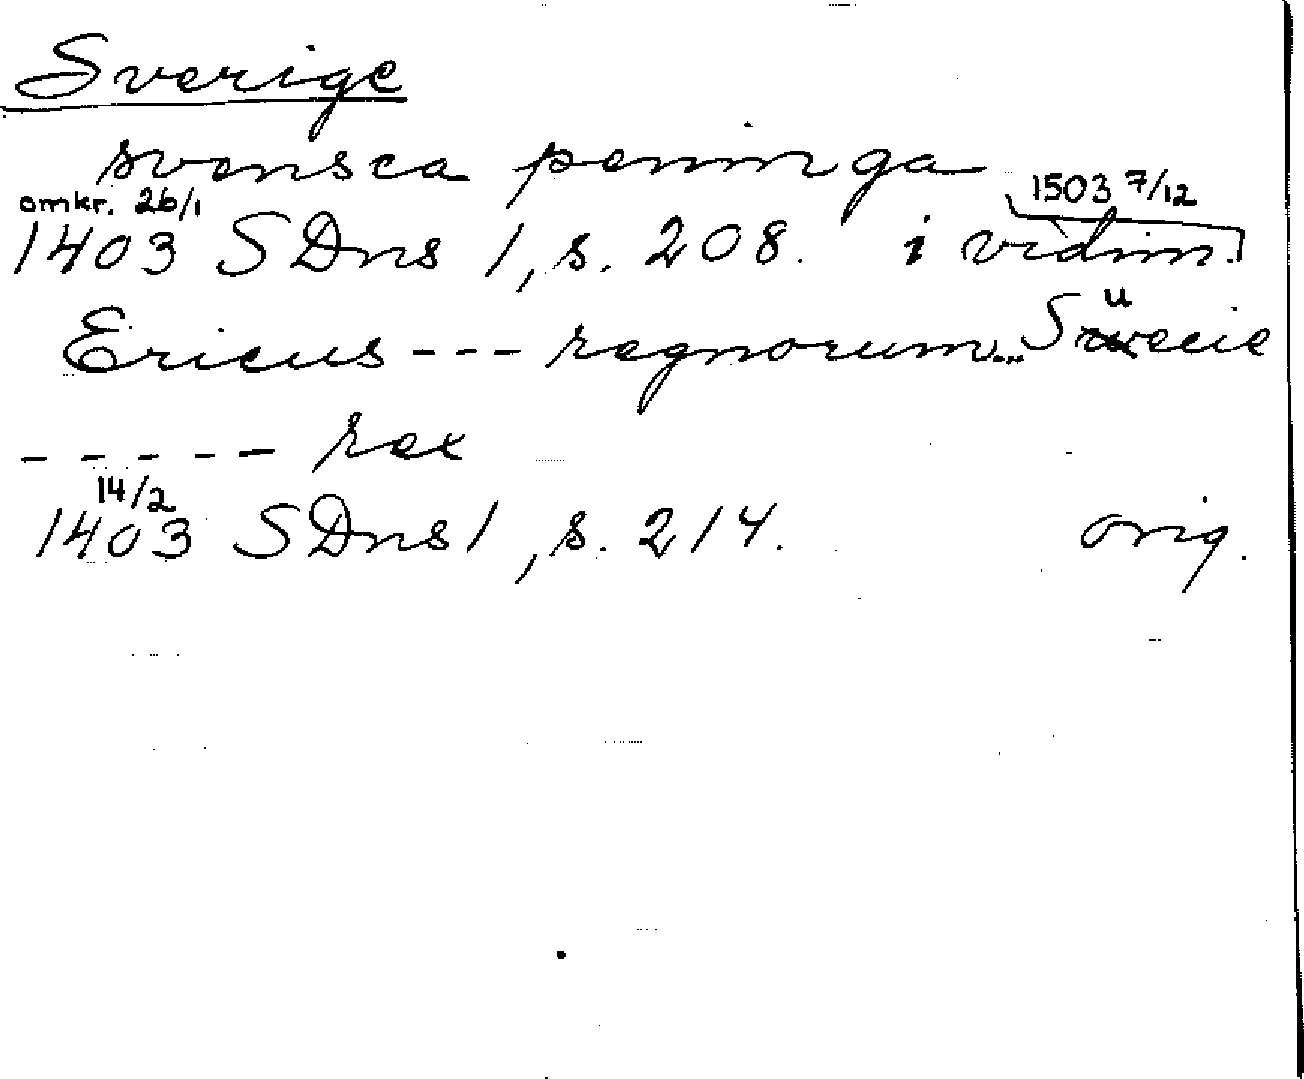 Sverige
svensca peninga
omkr. 26/1 1503 7/12
1403 SDns 1, s. 208. i vidim.
Ericus --- regnorum... Suecie
- - - - - rex
14/2
1403 SDns 1, s. 214. orig.